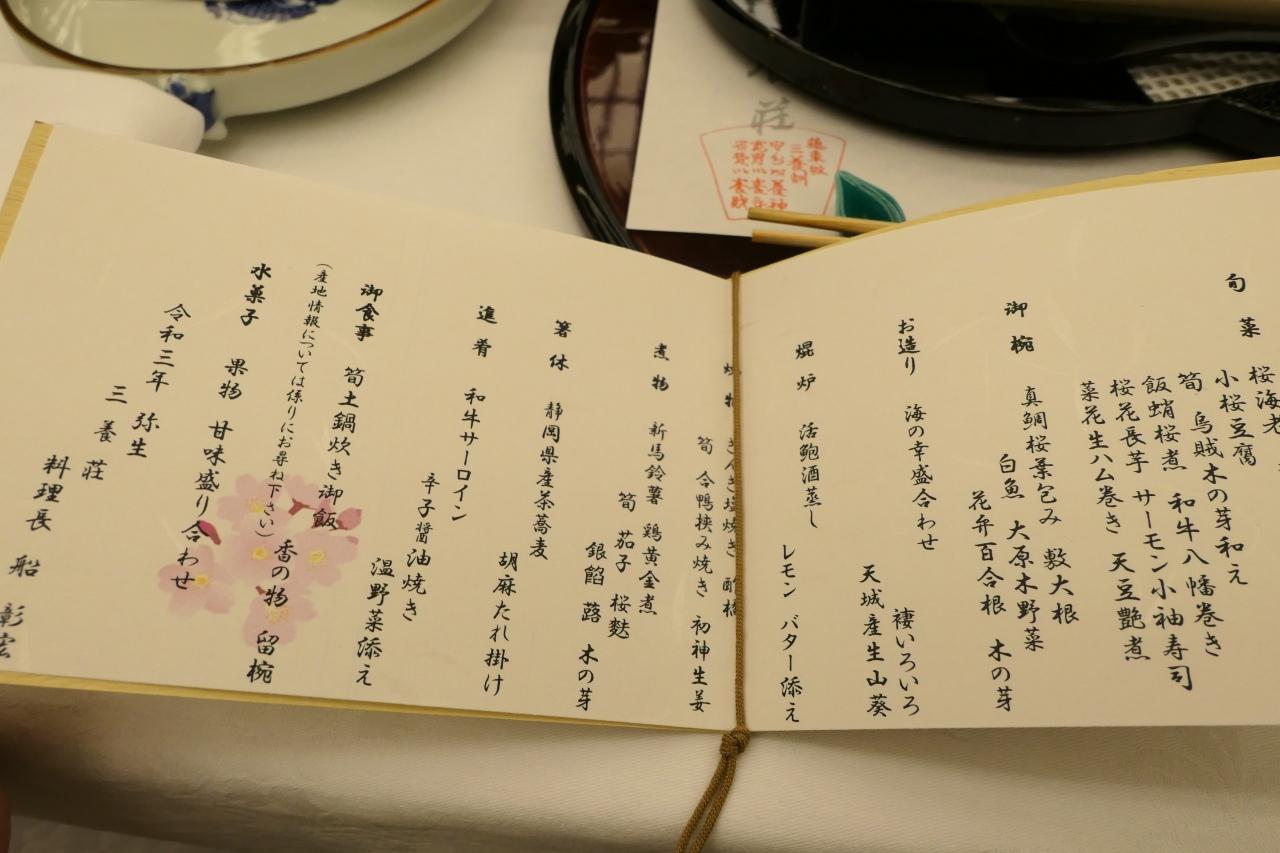 旬菜
桜海老
小桜豆腐
筍 烏賊木の芽和え
飯蛸桜煮 和牛八幡巻き
桜花長芋 サーモン小袖寿司
菜花生ハム巻き 天豆艶煮
御椀
真鯛桜葉包み 敷大根
白魚 大原木野菜
花弁百合根 木の芽
お造り 海の幸盛合わせ
褄いろいろ
天城産生山葵
焜炉 活鮑酒蒸し
レモン バター添え
焼物 きんき塩焼き 酢橘
筍 合鴨挟み焼き 初神生姜
煮物 新馬鈴薯 鶏黄金煮
筍 茄子 桜麩
銀餡 蕗 木の芽
箸休 静岡県産茶蕎麦
胡麻たれ掛け
進肴 和牛サーロイン
辛子醤油焼き
温野菜添え
御食事 筍土鍋炊き御飯
(産地情報については係りにお尋ね下さい) 香の物 留椀
水菓子 果物 甘味盛り合わせ
令和三年 弥生
三養荘
料理長 船 彰宏
荘
三養訓